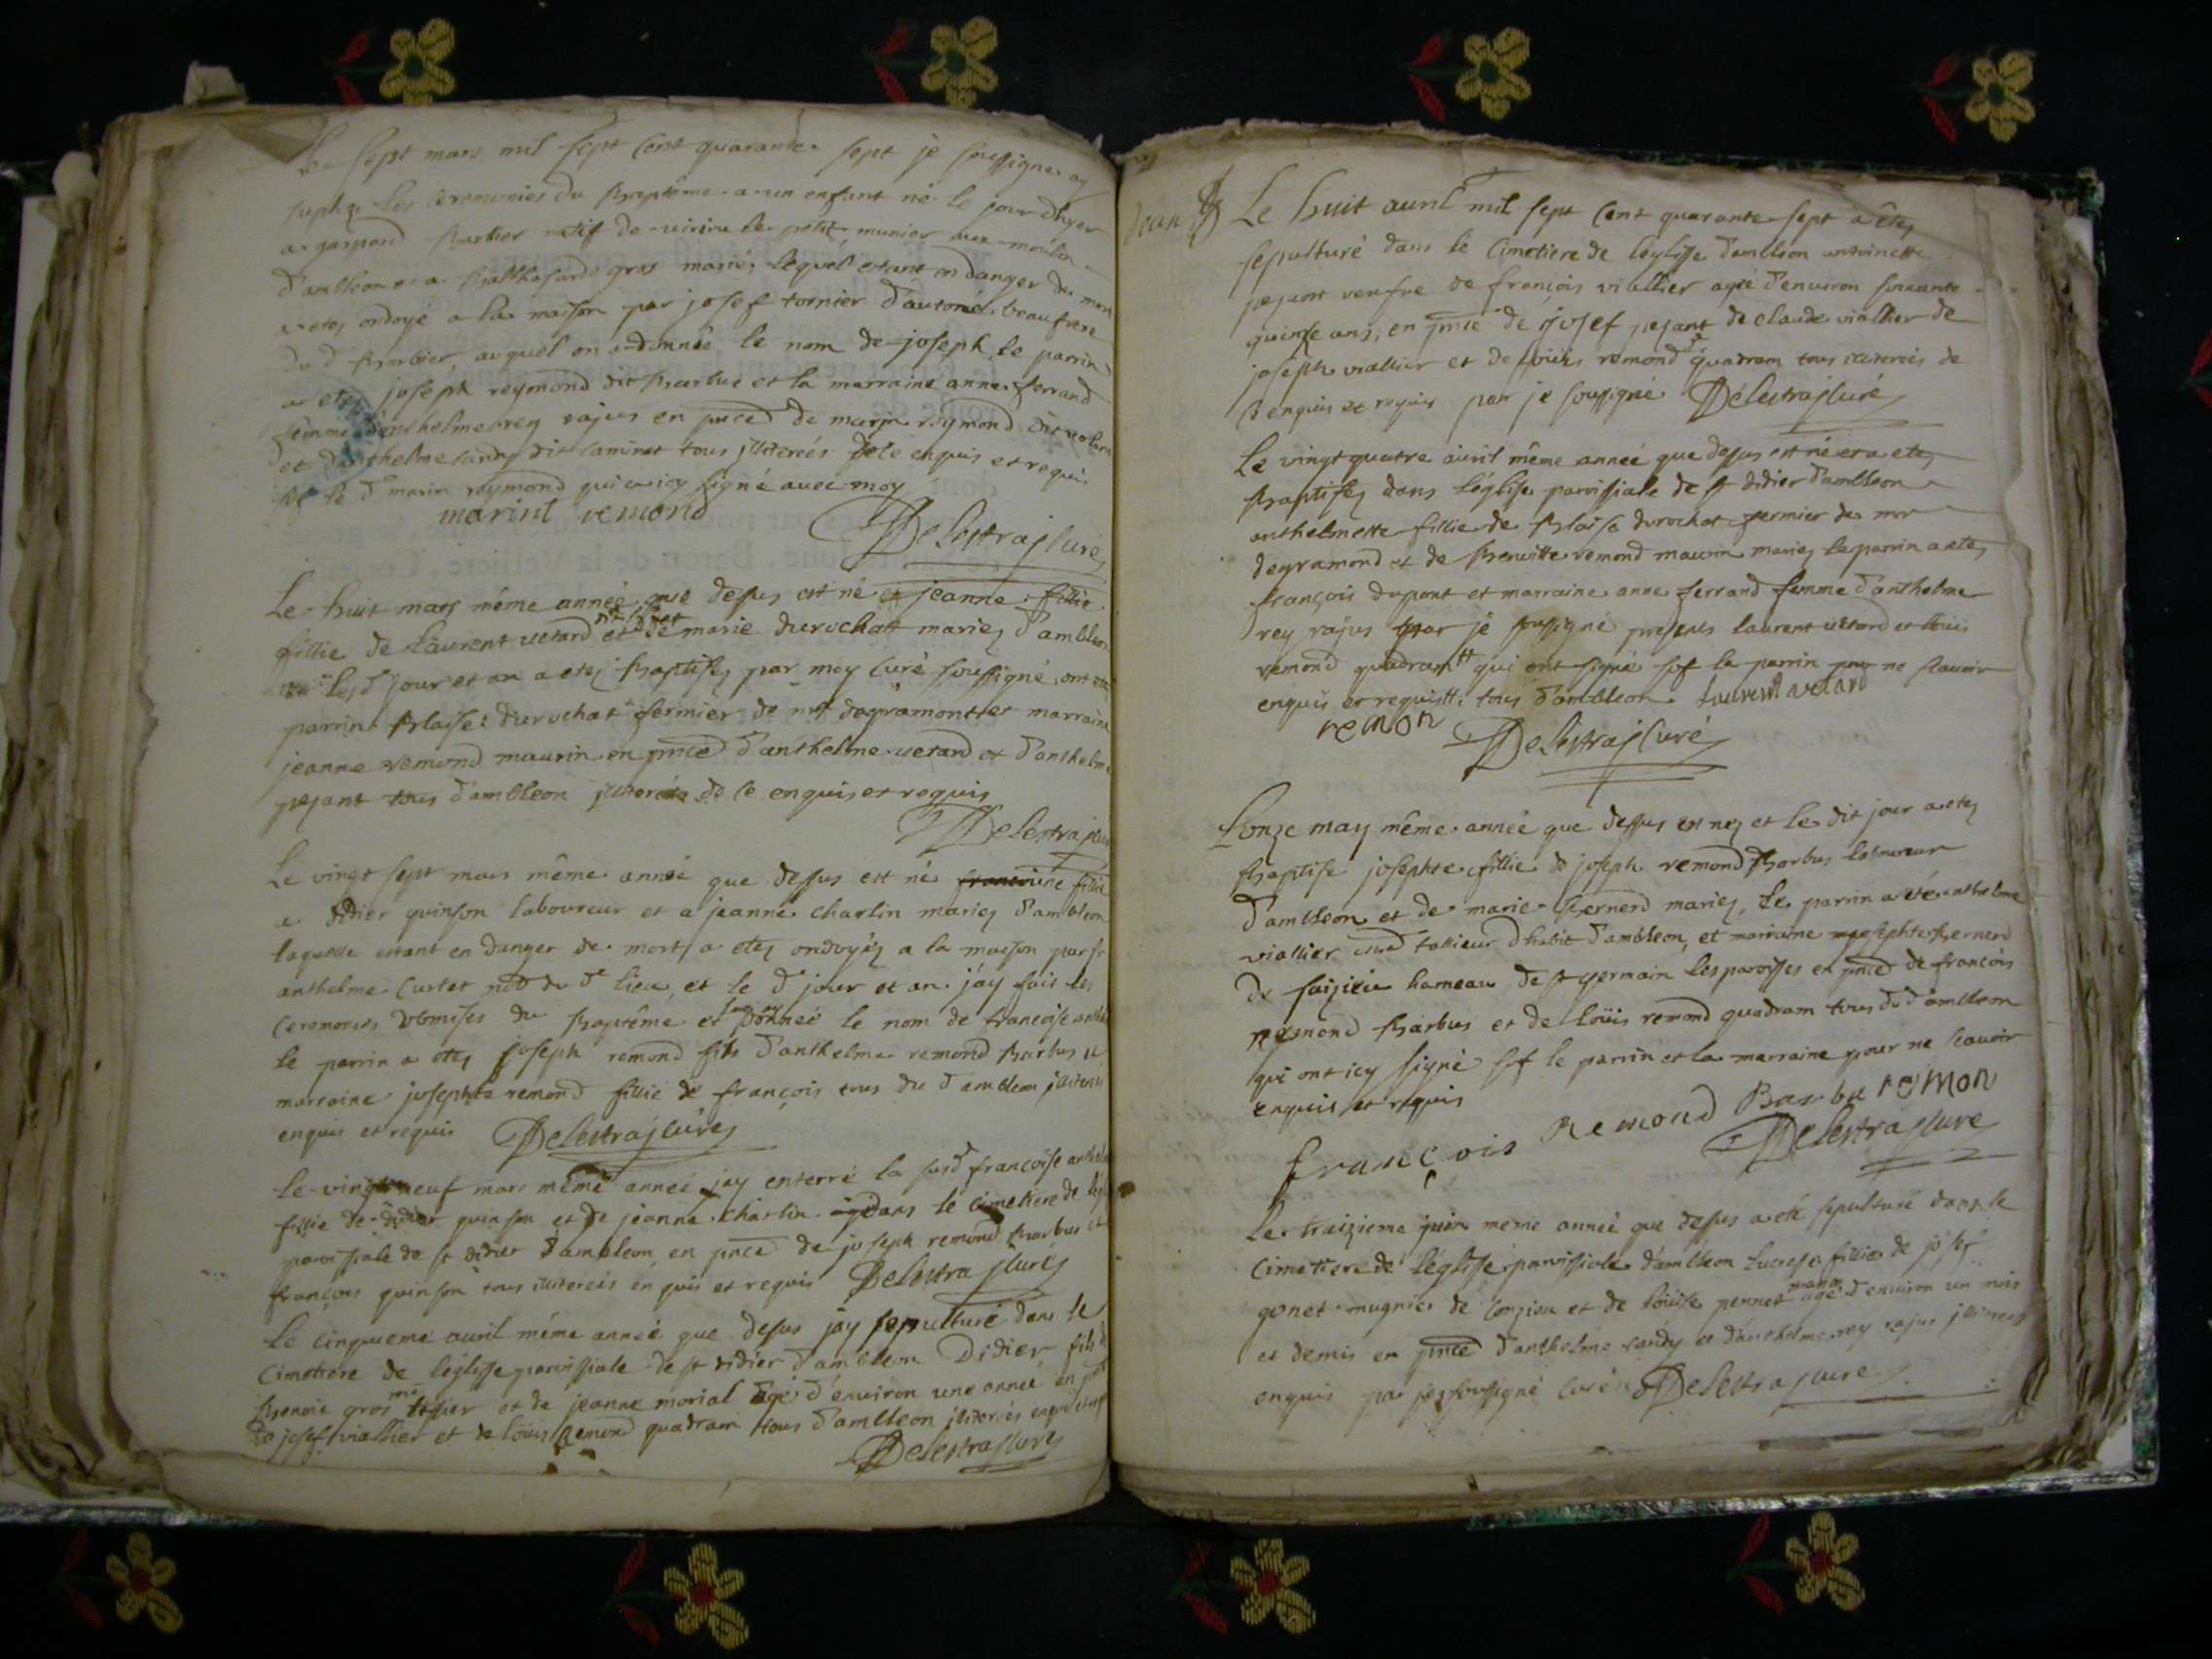 Le sept mars mil sept cent quarante sept je soussigné ay
supléz les ceremonies du Baptême a un enfant né le jour d'hyer
a gaspard Barbier natif de virieu le petit munier aux moulin
d'ambleon et a Balthasarde gros mariés lequel estant en danger de mort
a etez ondoyé a la maison par josef tornier d'autone beaufrere
du d Barbier, auquel on a donnée le nom de joseph le parrin
a etez joseph reymond dit Barbus et la marraine anne ferrand
femme d'anthelme rey rajus en pnced de marin reymond
et d'anthelme landy dit laminet tous illitereés de ce enquis et requis
sof le d marin reymond qui a icy signé avec moy
marint remond
Delestraz Curé
Le huit mars même année que dessus est né jeanne fillie
fillie de Laurent vetard et de marie durochatt mariez d'ambleon
lesd jour et an a etez Baptisez par moy Curé soussigné, ont été
parrint Blaise durochat fermier de mr degramont et marraine
jeanne remond maurin en pnced d'anthelme vetard et d'anthelme
pezant tous d'ambleon illitereés de ce enquis et requis
Delestraz Curé
Le vingt sept mars même année que dessus est né fillie
a didier quinson laboureur et a jeanne charlin mariez d'ambleon
laquelle estant en danger de mort a etez ondoyéz a la maison par
anthelme Custet du d lieu, et le d jour et an j'ay fait les
Ceremonies obmises du Baptême et donnéé le nom de francoise
le parrin a etez joseph remond fils d'anthelme remond Barbus et
marraine josephte remond fillie de françois tous du d ambleon illitereés
enquis et requis Delestraz Curéz
le vingt neuf mars même année jay enterré la susd françoise
fillie de didier quinson et de jeanne charlin dans le cimetiere de
paroissiale de st didier d'ambleon en pnced de joseph remond Barbus et
françois quinson tous illitereés enquis et requis Delestraz Curéz
Le cinquieme avril même année que dessus jay sepulturé dans le
Cimetiere de léglisse paroissiale de st didier d'ambleon Didier fils
Benoit gros tessier et de jeanne morial agé d'environ une année en
de josef viallier et de loüis remond quadram tous d'ambleon illitereés
Delestraz Curéz
Le huit avril mil sept cent quarante sept a êtez
sepulturé dans le Cimetiere de léglisse d'ambleon antoinette
pezant veufve de françois viallier agé d'environ soixante
quinze ans, en pnce de josef pezant de claude viallier de
joseph viallier et de loüis remond quadram tous illitereés de
enquis et requis par je soussigné Delestraz Curé
Le vingt quatre avril même année que dessus est né et a etez
Baptisez dans léglise paroissiale de st didier d'ambleon
anthelmette fillie de Blaise durochat fermier de mr
degramond et de Benoitte remond maurin mariez le parrin a etez
françois dupont et marraine anne ferrand femme d'anthelme
rey rajus par je soussigné presents laurent vetard et loüis
remond quadram qui ont signé sof le parrin pour ne scavoir
enquis et requis tous d'ambleon Laurent vetard
remon
Delestraz Curé
Lonze may même année que dessus est nez et le dit jour a etez
Baptise josephte fillie de joseph remond Barbus laboureur
d'ambleon et de marie Bernerd mariez, Le parrin a été anthelme
viallier tallieur d'habit d'ambleon, et marraine josephte Bernerd
de faizieu hameau de st germain les paroisses en pnced de françois
remond Barbus et de loüis remond quadram tous du d'ambleon
qui ont icy signé sof le parrin et la marraine pour ne scavoir
enquis et requis
françois Remond Barbu remon
Delestraz Curé
Le traizieme juin meme année que dessus a été sepulturé dans le
Cimetiere de léglisse paroissiale d'ambleon Lucrese fillie de
gonet mugnier de Conzieu et de loüise pennet agé d'environ un mois
et demis en pnced d'anthelme landy et d'anthelme rey rajus illitereés
enquis par je soussigné Curé Delestraz Curé